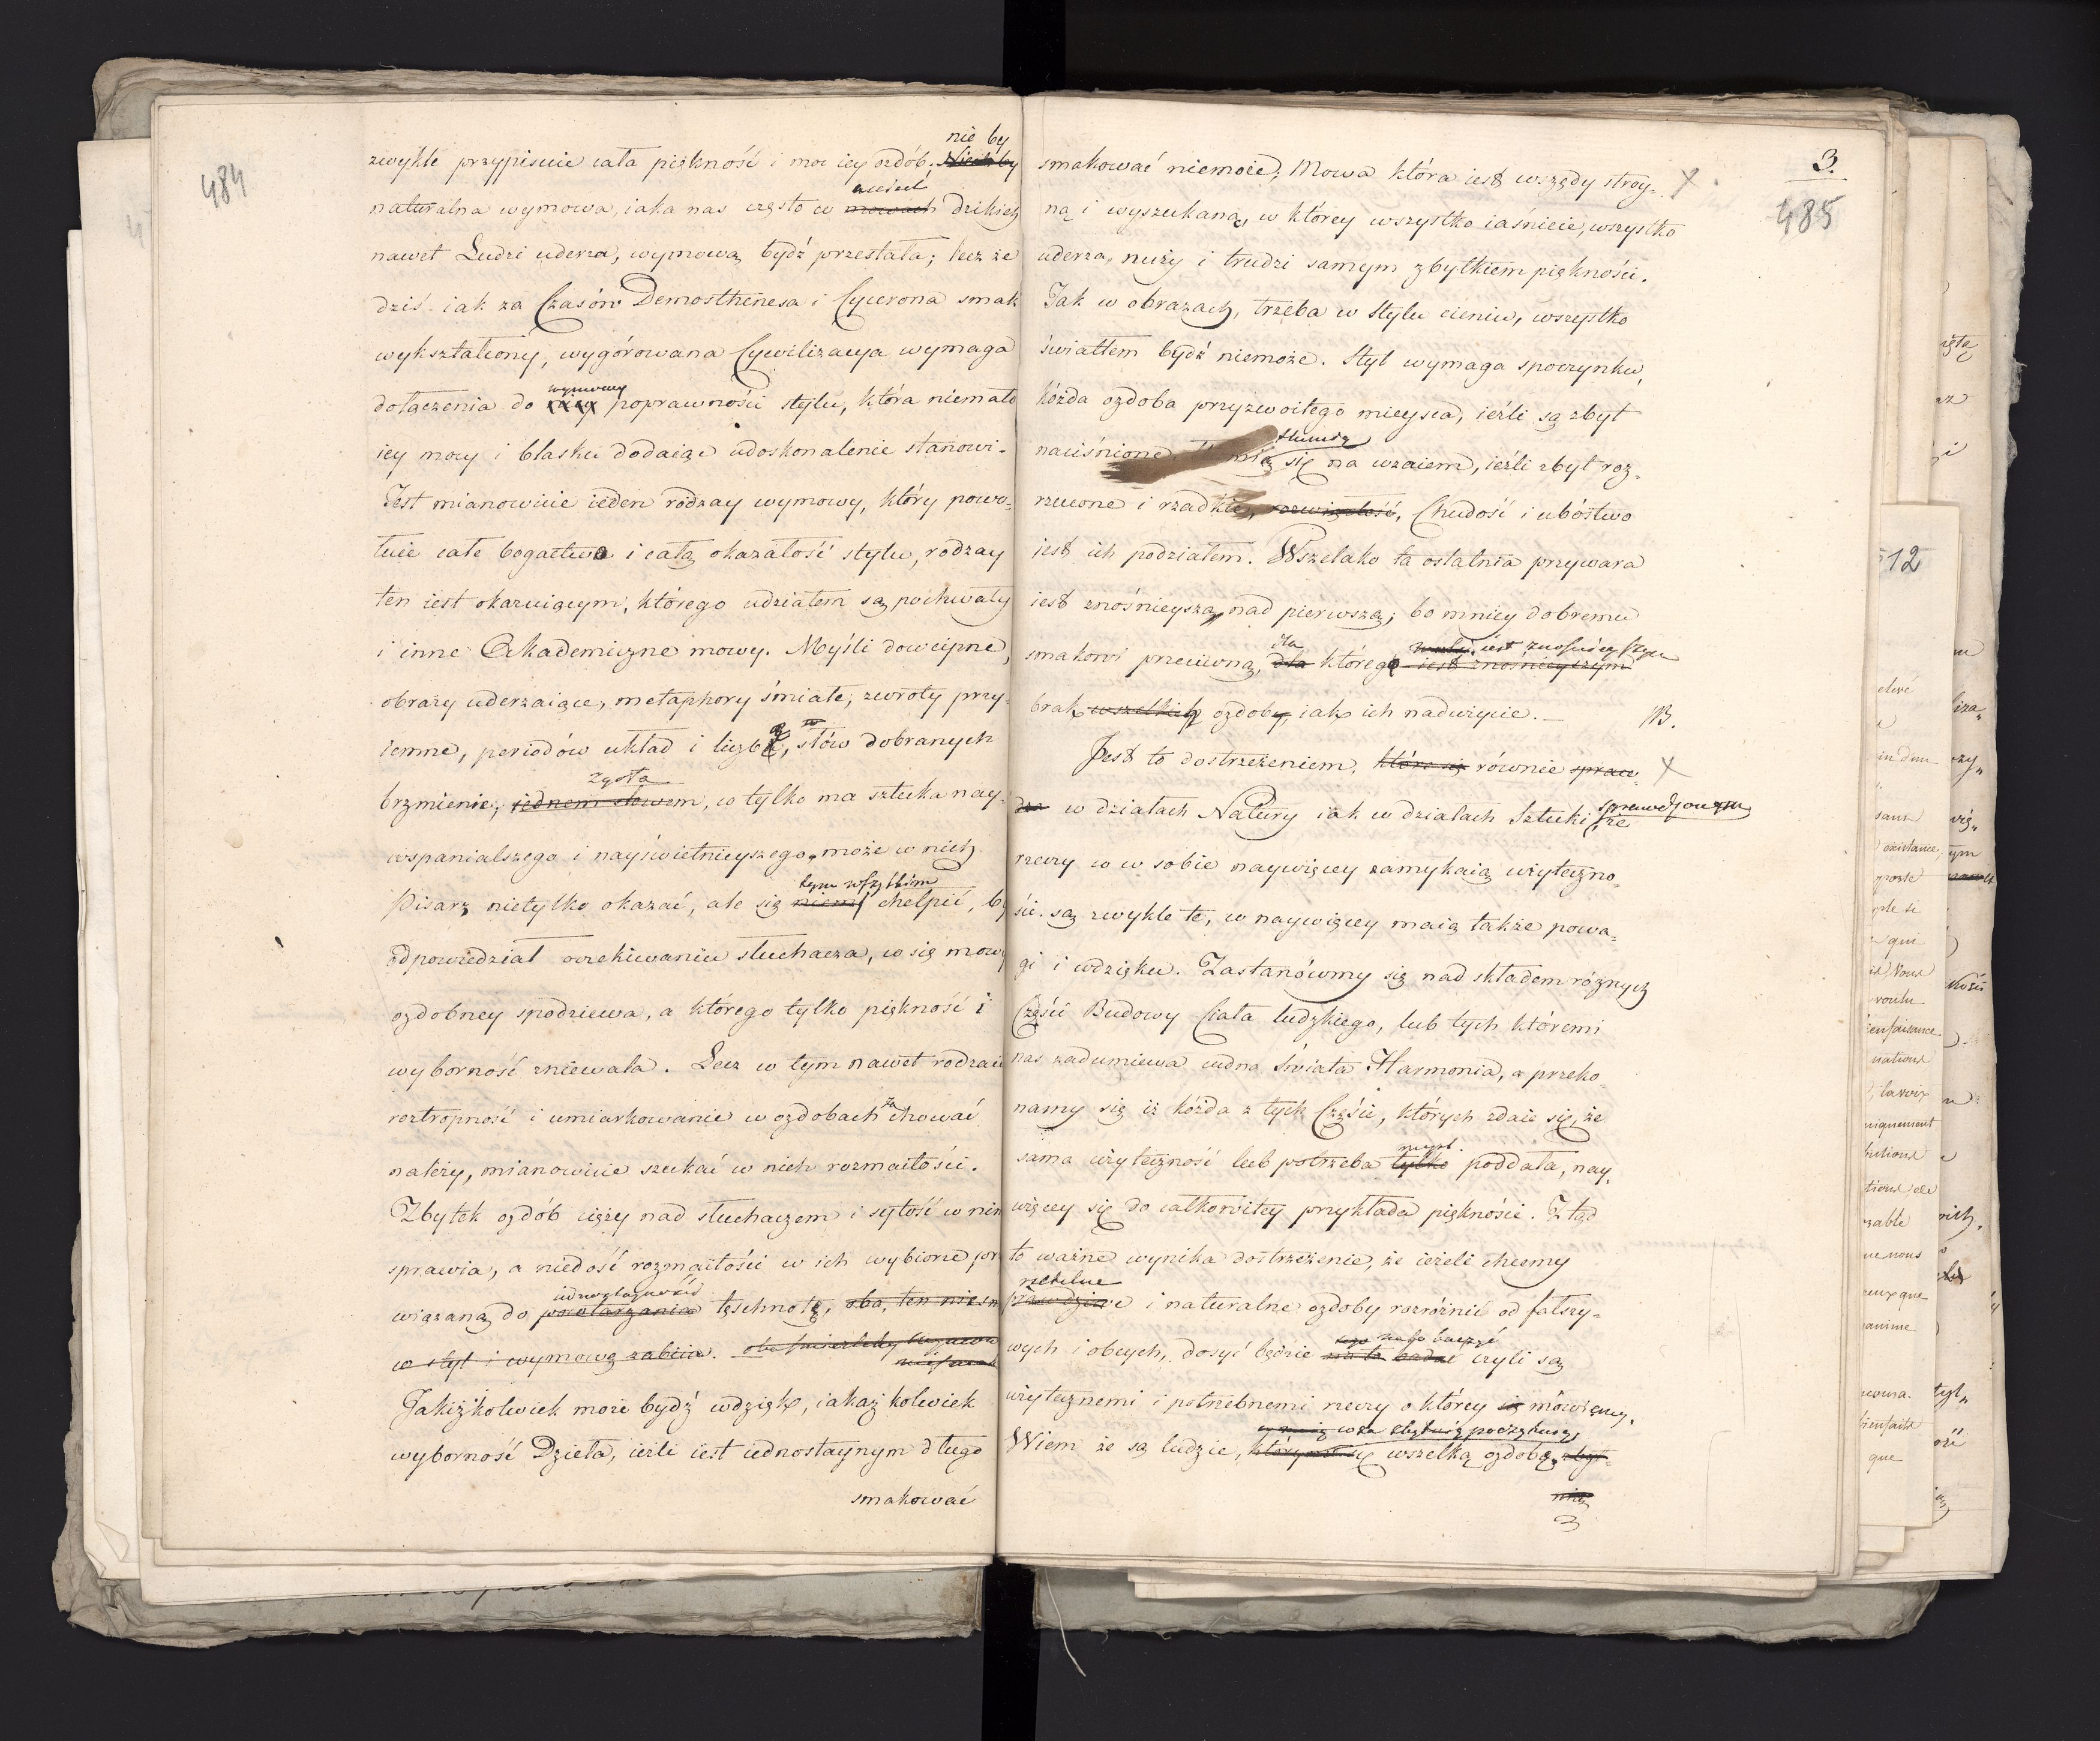 484
nie by
zwykle przypisuie cała piękność i moc iey ozdób;
naturalna wymowa, iaka nas często w mowach dzikich
nawet Ludzi uderza, wymową bydź przestała; lecz że
dziś iak za Czasów Demosthenesa i Cycerona smak
wykształcony, wygórowana Cywilizacya wymaga
wymowy
dołączenia do niey poprawności stylu, która niemało
iey mocy i blasku dodaiąc udoskonalenie stanowi.
Jest mianowicie ieden rodzay wymowy, który powo-
łuie całe bogactwo i całą okazałość stylu, rodzay
ten iest okazuiącym, którego udziałem są pochwały
i inne Akademiczne mowy. Myśli dowcipne,
obrazy uderzaiące, metaphory śmiałe, zwroty przy-
iemne, periodów układ i liczba, słów dobranych
zgoła
brzmienie, jednem słowem, co tylko ma sztuka nay-
wspanialszego i nayświetnieyszego, może w nich
tym wszystkim
Pisarz nietylko okazać, ale się niemi chełpić, by
odpowiedział oczekiwaniu słuchacza, co się mowy
ozdobney spodziewa, a którego tylko piękność i
wyborność zniewala. Lecz w tym nawet rodzaiu
za
roztropność i umiarkowanie w ozdobach chować
należy, mianowicie szukać w nich rozmaitości.
Zbytek ozdób ciąży nad słuchaczem i sytość w nim
sprawia, a niedość rozmaitości w ich wyborze
jednostayności
wiązaną do powtarzania tęschnotę, oba, ten
w styl i wymowę zabiia.
Jakiżkolwiek może bydź wdzięk, iakaż kolwiek
wyborność Dzieła, ieżli iest iednostaynym długo
smakować
3.
485
smakować niemoże; Mowa która iest wszędy stroy-
ną i wyszukaną, w którey wszystko iaśnieie, wszystko
uderza, nuży i trudzi samym zbytkiem piękności.
Jak w obrazach, trzeba w Stylu cieniu, wszystko
światłem bydź niemoże. Styl wymaga spoczynku,
każda ozdoba przyzwoitego mieysca, ieżli są zbyt
tłumią
naciśnione się na wzaiem, ieżli zbyt roz-
rzucone i rzadkie, Chudość i ubóstwo
iest ich podziałem. Wszelako ta ostatnia przywara
iest znośnieyszą nad pierwszą; bo mniey dobremu
dla iest znośnieyszym
smakowi przeciwną, dla którego iest znośnieyszym
brak wszelkich ozdoby, iak ich nadużycie. — NB.
Jest to dostrzeżeniem, które się równie spraw-
dza w działach Natury iak w działach Sztuki sprawdzonym, że
rzeczy co w sobie naywięcey zamykaią użyteczno-
ści są zwykle te, co naywięcey maią także powa-
gi i wdzięku. Zastanówmy się nad składem różnych
Części Budowy Ciała ludzkiego, lub tych któremi
nas zadumiewa cudna Świata Harmonia, a przeko-
namy się iż każda z tych Części, których zdaie się, że
sama użyteczność lub potrzeba tylko poddała, nay-
więcey się do całkowitey przykłada piękności. Ztąd
to ważne wynika dostrzeżenie, że ieżeli chcemy
rzetelne
prawdziwe i naturalne ozdoby rozróżnić od fałszy-
wych i obcych, dosyć będzie czyli są
użytecznemi i potrzebnemi rzeczy o którey mówiemy.
Wiem że są ludzie, którym się wszelką ozdobę